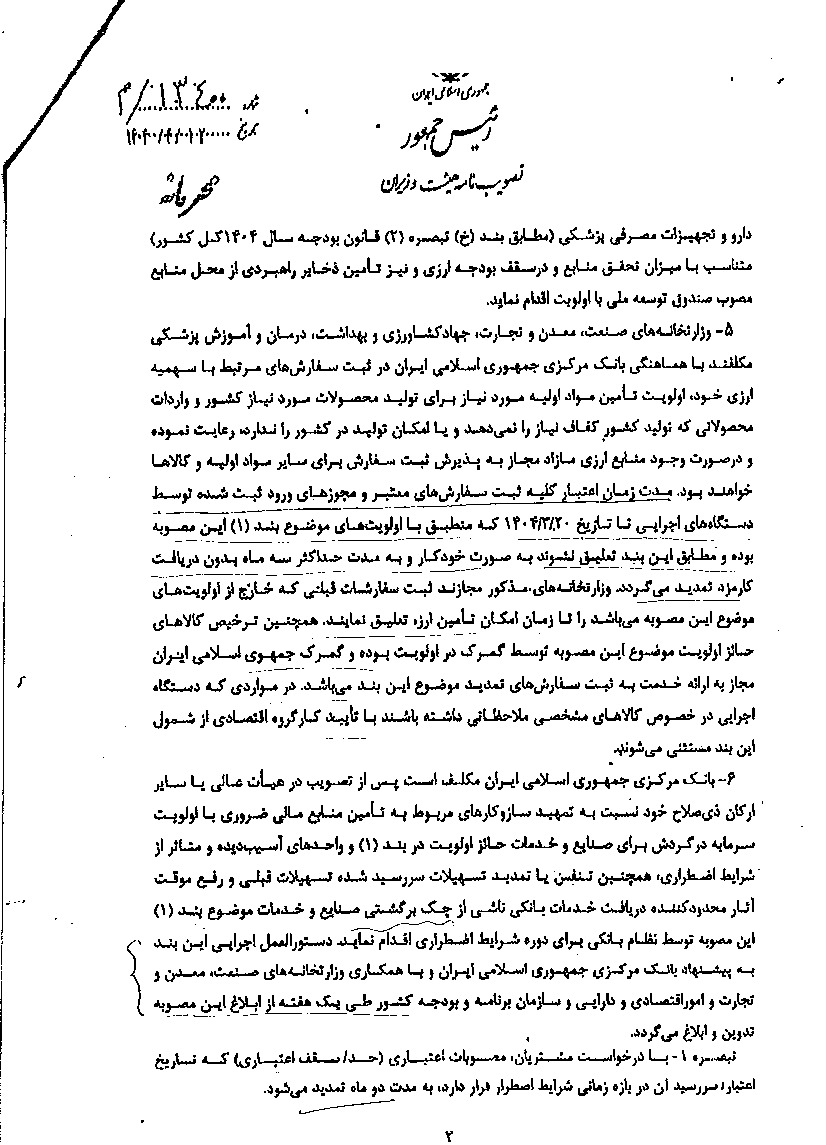 جمهوری اسلامی ایران
رئیس جمهور
تصویب نامه هیئت وزیران
شماره
تاریخ
محرمانه
دارو و تجهیزات مصرفی پزشکی (مطابق بند (خ) تبصره (۲) قانون بودجه سال ۱۴۰۴ کل کشور)
متناسب با میزان تحقق منابع و درسقف بودجه ارزی و نیز تأمین ذخایر راهبردی از محل منابع
مصوب صندوق توسعه ملی با اولویت اقدام نماید.
۵- وزارتخانه‌های صنعت، معدن و تجارت، جهادکشاورزی و بهداشت، درمان و آموزش پزشکی
مکلفند با هماهنگی بانک مرکزی جمهوری اسلامی ایران در ثبت سفارش‌های مرتبط با سهمیه
ارزی خود، اولویت تأمین مواد اولیه مورد نیاز برای تولید محصولات مورد نیاز کشور و واردات
محصولاتی که تولید کشور کفاف نیاز را نمی‌دهد و یا امکان تولید در کشور را ندارد، رعایت نموده
و درصورت وجود منابع ارزی مازاد مجاز به پذیرش ثبت سفارش برای سایر مواد اولیه و کالاها
خواهند بود. مدت زمان اعتبار کلیه ثبت سفارش‌های معتبر و مجوزهای ورود ثبت شده توسط
دستگاه‌های اجرایی تا تاریخ ۱۴۰۴/۳/۲۰ که منطبق با اولویت‌های موضوع بند (۱) این مصوبه
بوده و مطابق این بند تعلیق نشوند به صورت خودکار و به مدت حداکثر سه ماه بدون دریافت
کارمزد تمدید می‌گردد. وزارتخانه‌های مذکور مجازند ثبت سفارشات قبلی که خارج از اولویت‌های
موضوع این مصوبه می‌باشد را تا زمان امکان تأمین ارز، تعلیق نمایند. همچنین ترخیص کالاهای
حائز اولویت موضوع این مصوبه توسط گمرک در اولویت بوده و گمرک جمهوی اسلامی ایران
مجاز به ارائه خدمت به ثبت سفارش‌های تمدید موضوع این بند می‌باشد. در مواردی که دستگاه
اجرایی در خصوص کالاهای مشخصی ملاحظاتی داشته باشند با تأیید کارگروه اقتصادی از شمول
این بند مستثنی می‌شوند.
۶- بانک مرکزی جمهوری اسلامی ایران مکلف است پس از تصویب در هیأت عالی یا سایر
ارکان ذی‌صلاح خود نسبت به تمهید سازوکارهای مربوط به تأمین منابع مالی ضروری با اولویت
سرمایه درگردش برای صنایع و خدمات حائز اولویت در بند (۱) و واحدهای آسیب‌دیده و متاثر از
شرایط اضطراری، همچنین تنفس یا تمدید تسهیلات سررسید شده تسهیلات قبلی و رفع موقت
آثار محدودکننده دریافت خدمات بانکی ناشی از چک برگشتی صنایع و خدمات موضوع بند (۱)
این مصوبه توسط نظام بانکی برای دوره شرایط اضطراری اقدام نماید. دستورالعمل اجرایی این بند
به پیشنهاد بانک مرکزی جمهوری اسلامی ایران و با همکاری وزارتخانه‌های صنعت، معدن و
تجارت و اموراقتصادی و دارایی و سازمان برنامه و بودجه کشور طی یک هفته از ابلاغ این مصوبه
تدوین و ابلاغ می‌گردد.
تبصره ۱- با درخواست مشتریان، مصوبات اعتباری (حد/سقف اعتباری) که تاریخ
اعتبار، سررسید آن در بازه زمانی شرایط اضطرار قرار دارد، به مدت دو ماه تمدید می‌شود.